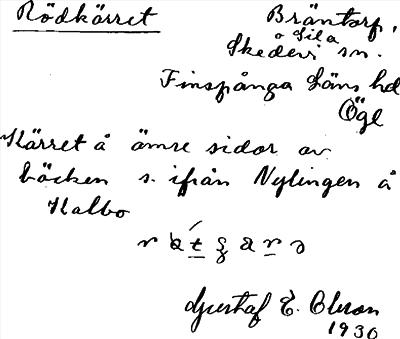 Rödkärret
Bräntorp,
å Sila
Skedevi sn.
Finspånga Läns hd
Ögl
Kärret å ömre sidor av
bäcken s. ifrån Nylingen å
Kalbo
Gustaf E. Olsson
1930